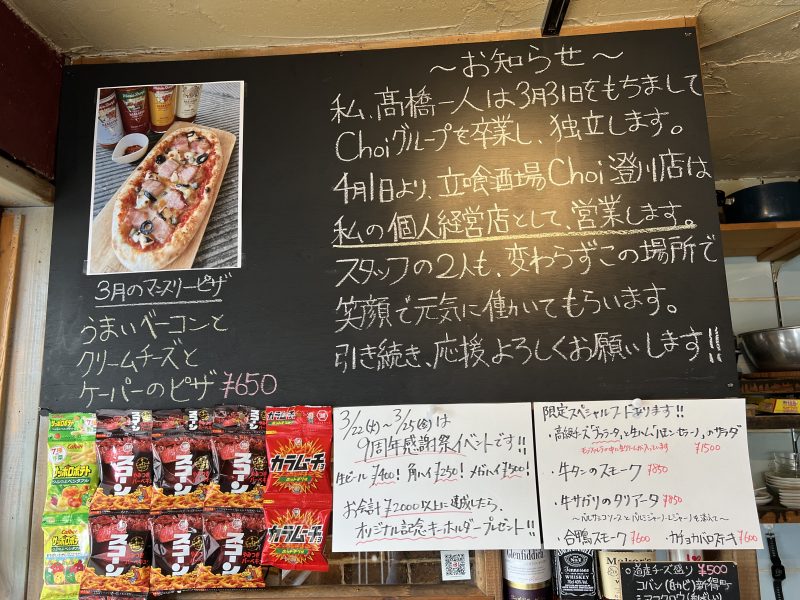 ～お知らせ～
私、髙橋一人は3月31日をもちまして
Choiグループを卒業し、独立します。
4月1日より、立喰酒場Choi澄川店は
私の個人経営店として、営業します。
スタッフの2人も、変わらずこの場所で
笑顔で元気に働いてもらいます。
引き続き、応援よろしくお願いします!!
3月のマンスリーピザ
うまいベーコンと
クリームチーズと
ケーパーのピザ ¥650
3/22(火)～3/25(金)は
9周年感謝祭イベントです!!
生ビール¥400! 角ハイ¥250! メガハイ¥500!
お会計¥2000以上に達成したら、
オリジナル記念キーホルダープレゼント!!
限定スペシャルフードあります!!
・高級チーズ「ブッラータ」と生ハム「ハモンセラーノ」のサラダ
¥1500
・牛タンのスモーク ¥850
・牛サガリのタリアータ ¥850
・合鴨スモーク ¥600
¥600
スコーン
スコーン
スコーン
カラムーチョ
スコーン
スコーン
スコーン
カラムーチョ
Calbee
Glenfiddich
Jennessee
WHISKEY
Maker's
道産チーズ盛り ¥500